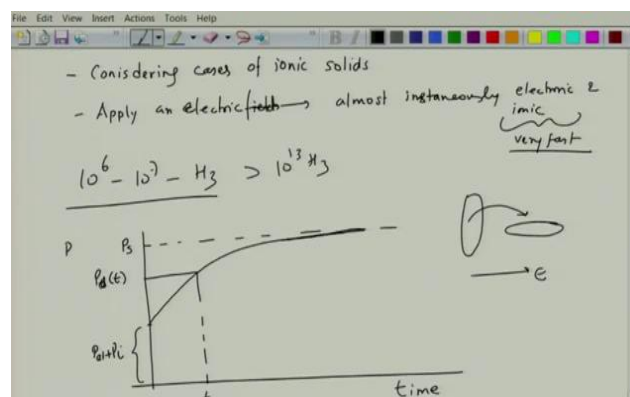 File Edit View Insert Actions Tools Help
- Conisdering cases of ionic solids
- Apply an electric field → almost instaneously electronic &
ionic
very fast
10^6 - 10^7 - Hz > 10^13 Hz
P Ps
Pd(t)
Pel+Pi
E
t
time